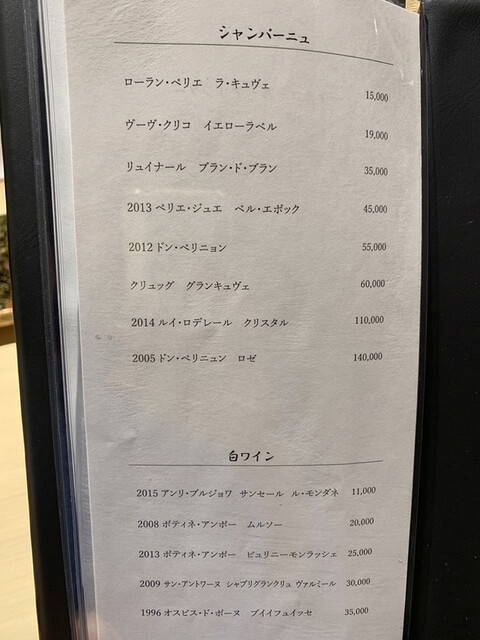 シャンパーニュ
ローラン・ペリエ ラ・キュヴェ 15,000
ヴーヴ・クリコ イエローラベル 19,000
リュイナール ブラン・ド・ブラン 35,000
2013 ペリエ・ジュエ ベル・エポック 45,000
2012 ドン・ペリニョン 55,000
クリュッグ グランキュヴェ 60,000
2014 ルイ・ロデレール クリスタル 110,000
2005 ドン・ペリニュン ロゼ 140,000
白ワイン
2015 アンリ・ブルジョワ サンセール ル・モンダネ 11,000
2008 ポティネ・アンポー ムルソー 20,000
2013 ポティネ・アンポー ピュリニーモンラッシェ 25,000
2009 サン・アントワーヌ シャブリグランクリュ ヴァルミール 30,000
1996 オスピス・ド・ボーヌ プイイフュイッセ 35,000